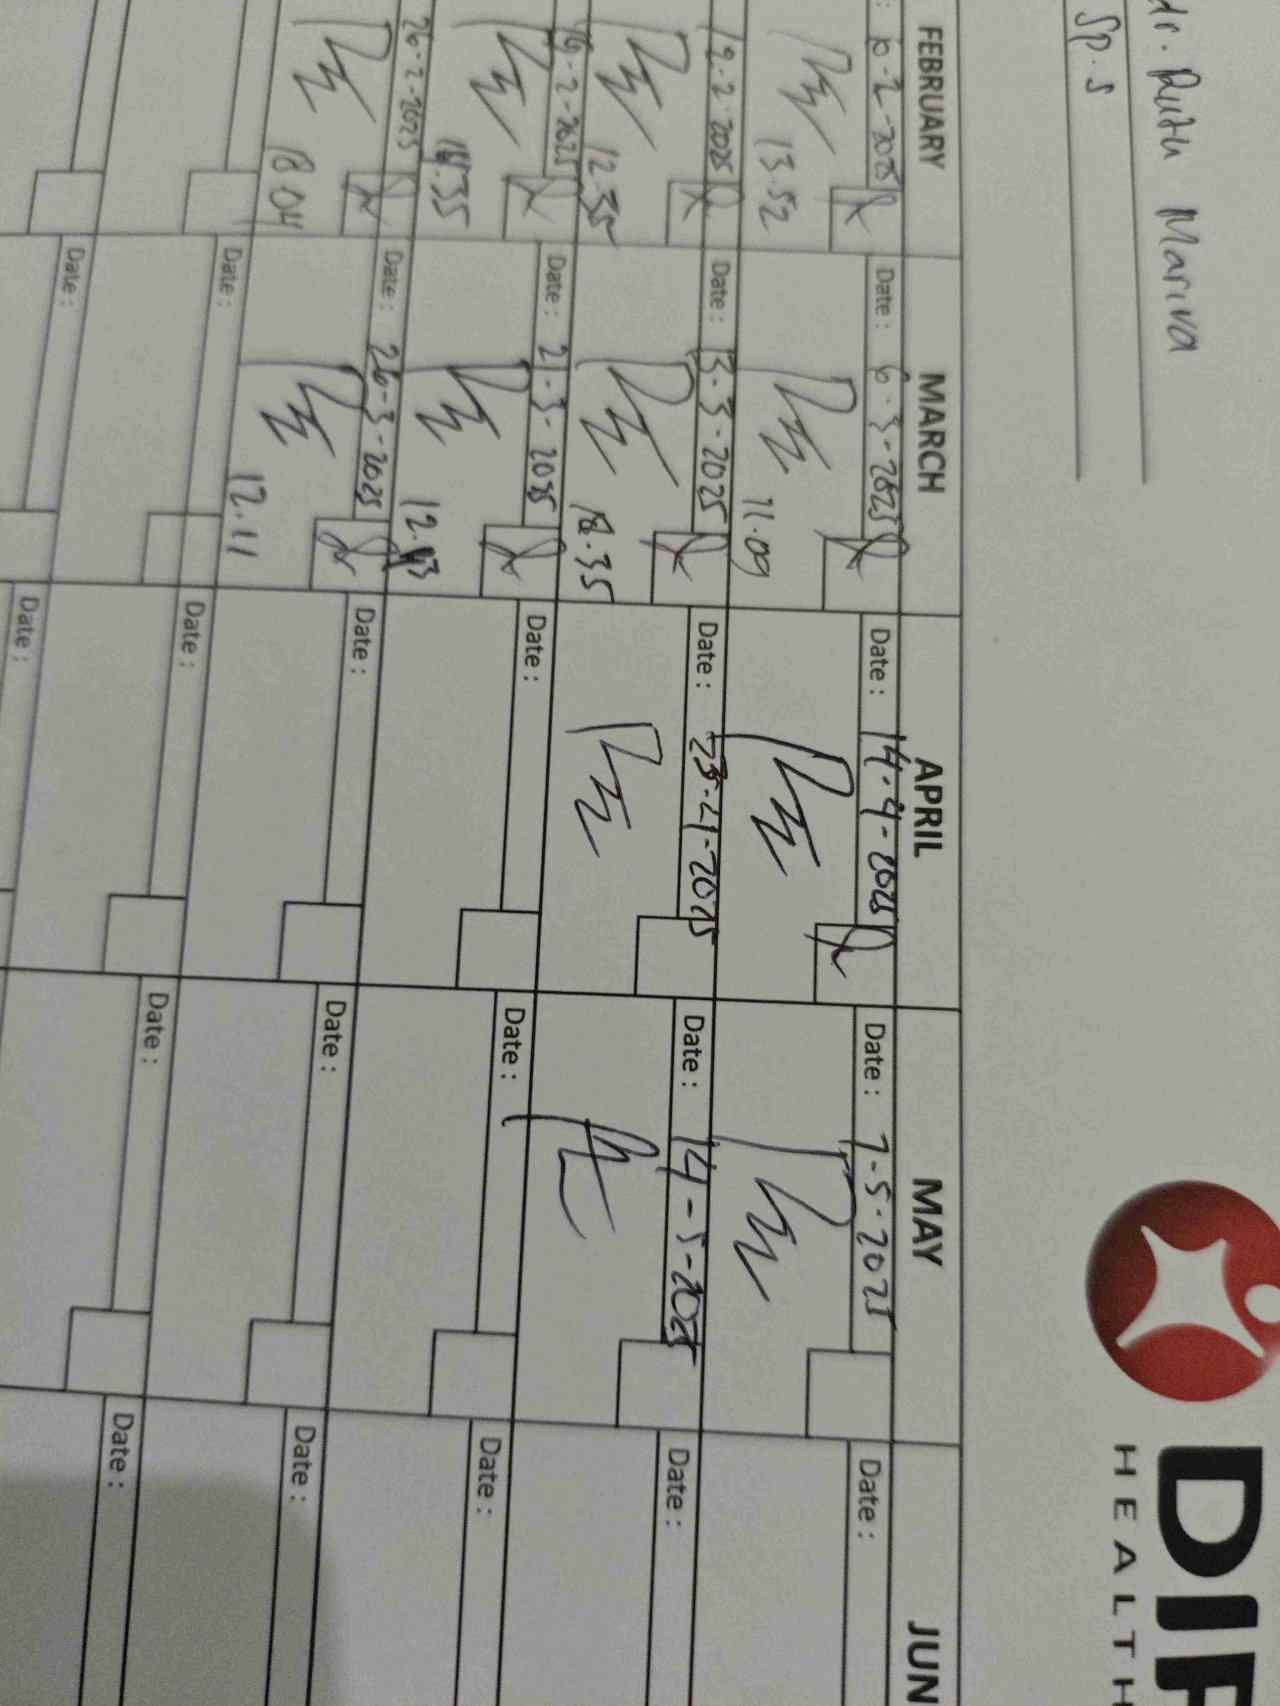 dr. Ruth Mariva
Sp. S
DIP
HEALTH
FEBRUARY
MARCH
APRIL
MAY
JUN
10-2-2025
Date : 6-3-2025
Date : 14-4-2025
Date : 7-5-2025
Date :
13.52
11.09
Date : 13-3-2025
Date : 23-4-2025
Date : 14-5-2025
Date :
12.35
18.35
Date : 21-3-2025
Date :
Date :
Date :
12.43
26-2-2025
Date : 26-3-2025
Date :
Date :
Date :
18.04
12.11
Date :
Date :
Date :
Date :
Date :
Date :